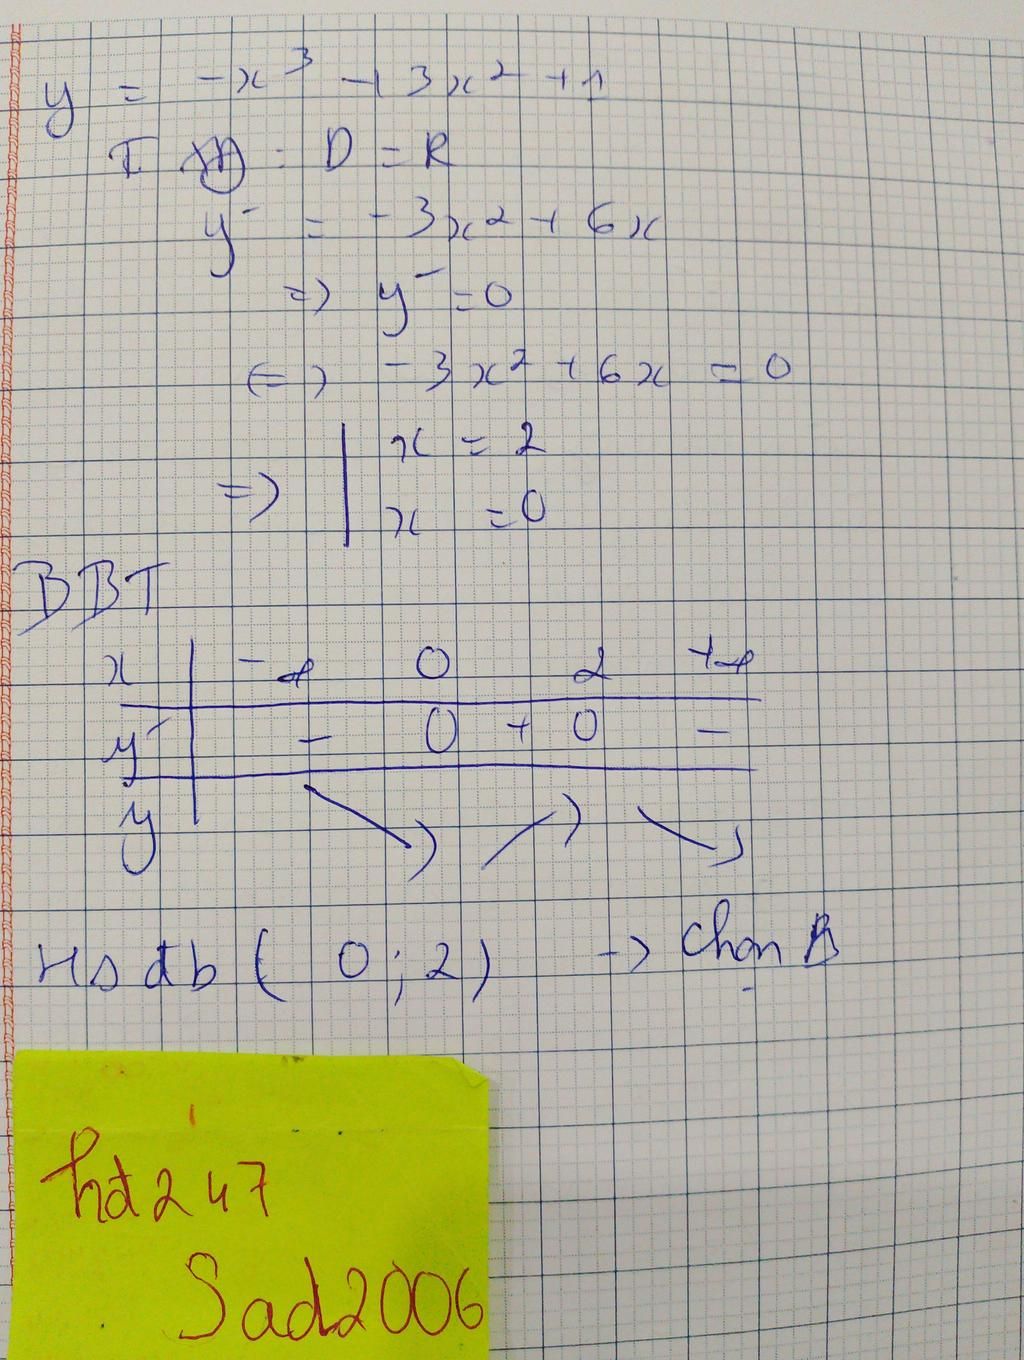 y = -x³ + 3x² + 1
TXĐ : D = R
y' = -3x² + 6x
=> y' = 0
<=> -3x² + 6x = 0
=> | x = 2
x = 0
BBT
x | -∞ 0 2 +∞
y' | - 0 + 0 -
y | ↘ ↗ ↘
Hsđb ( 0 ; 2 ) -> Chọn B
hd247
Sad2006